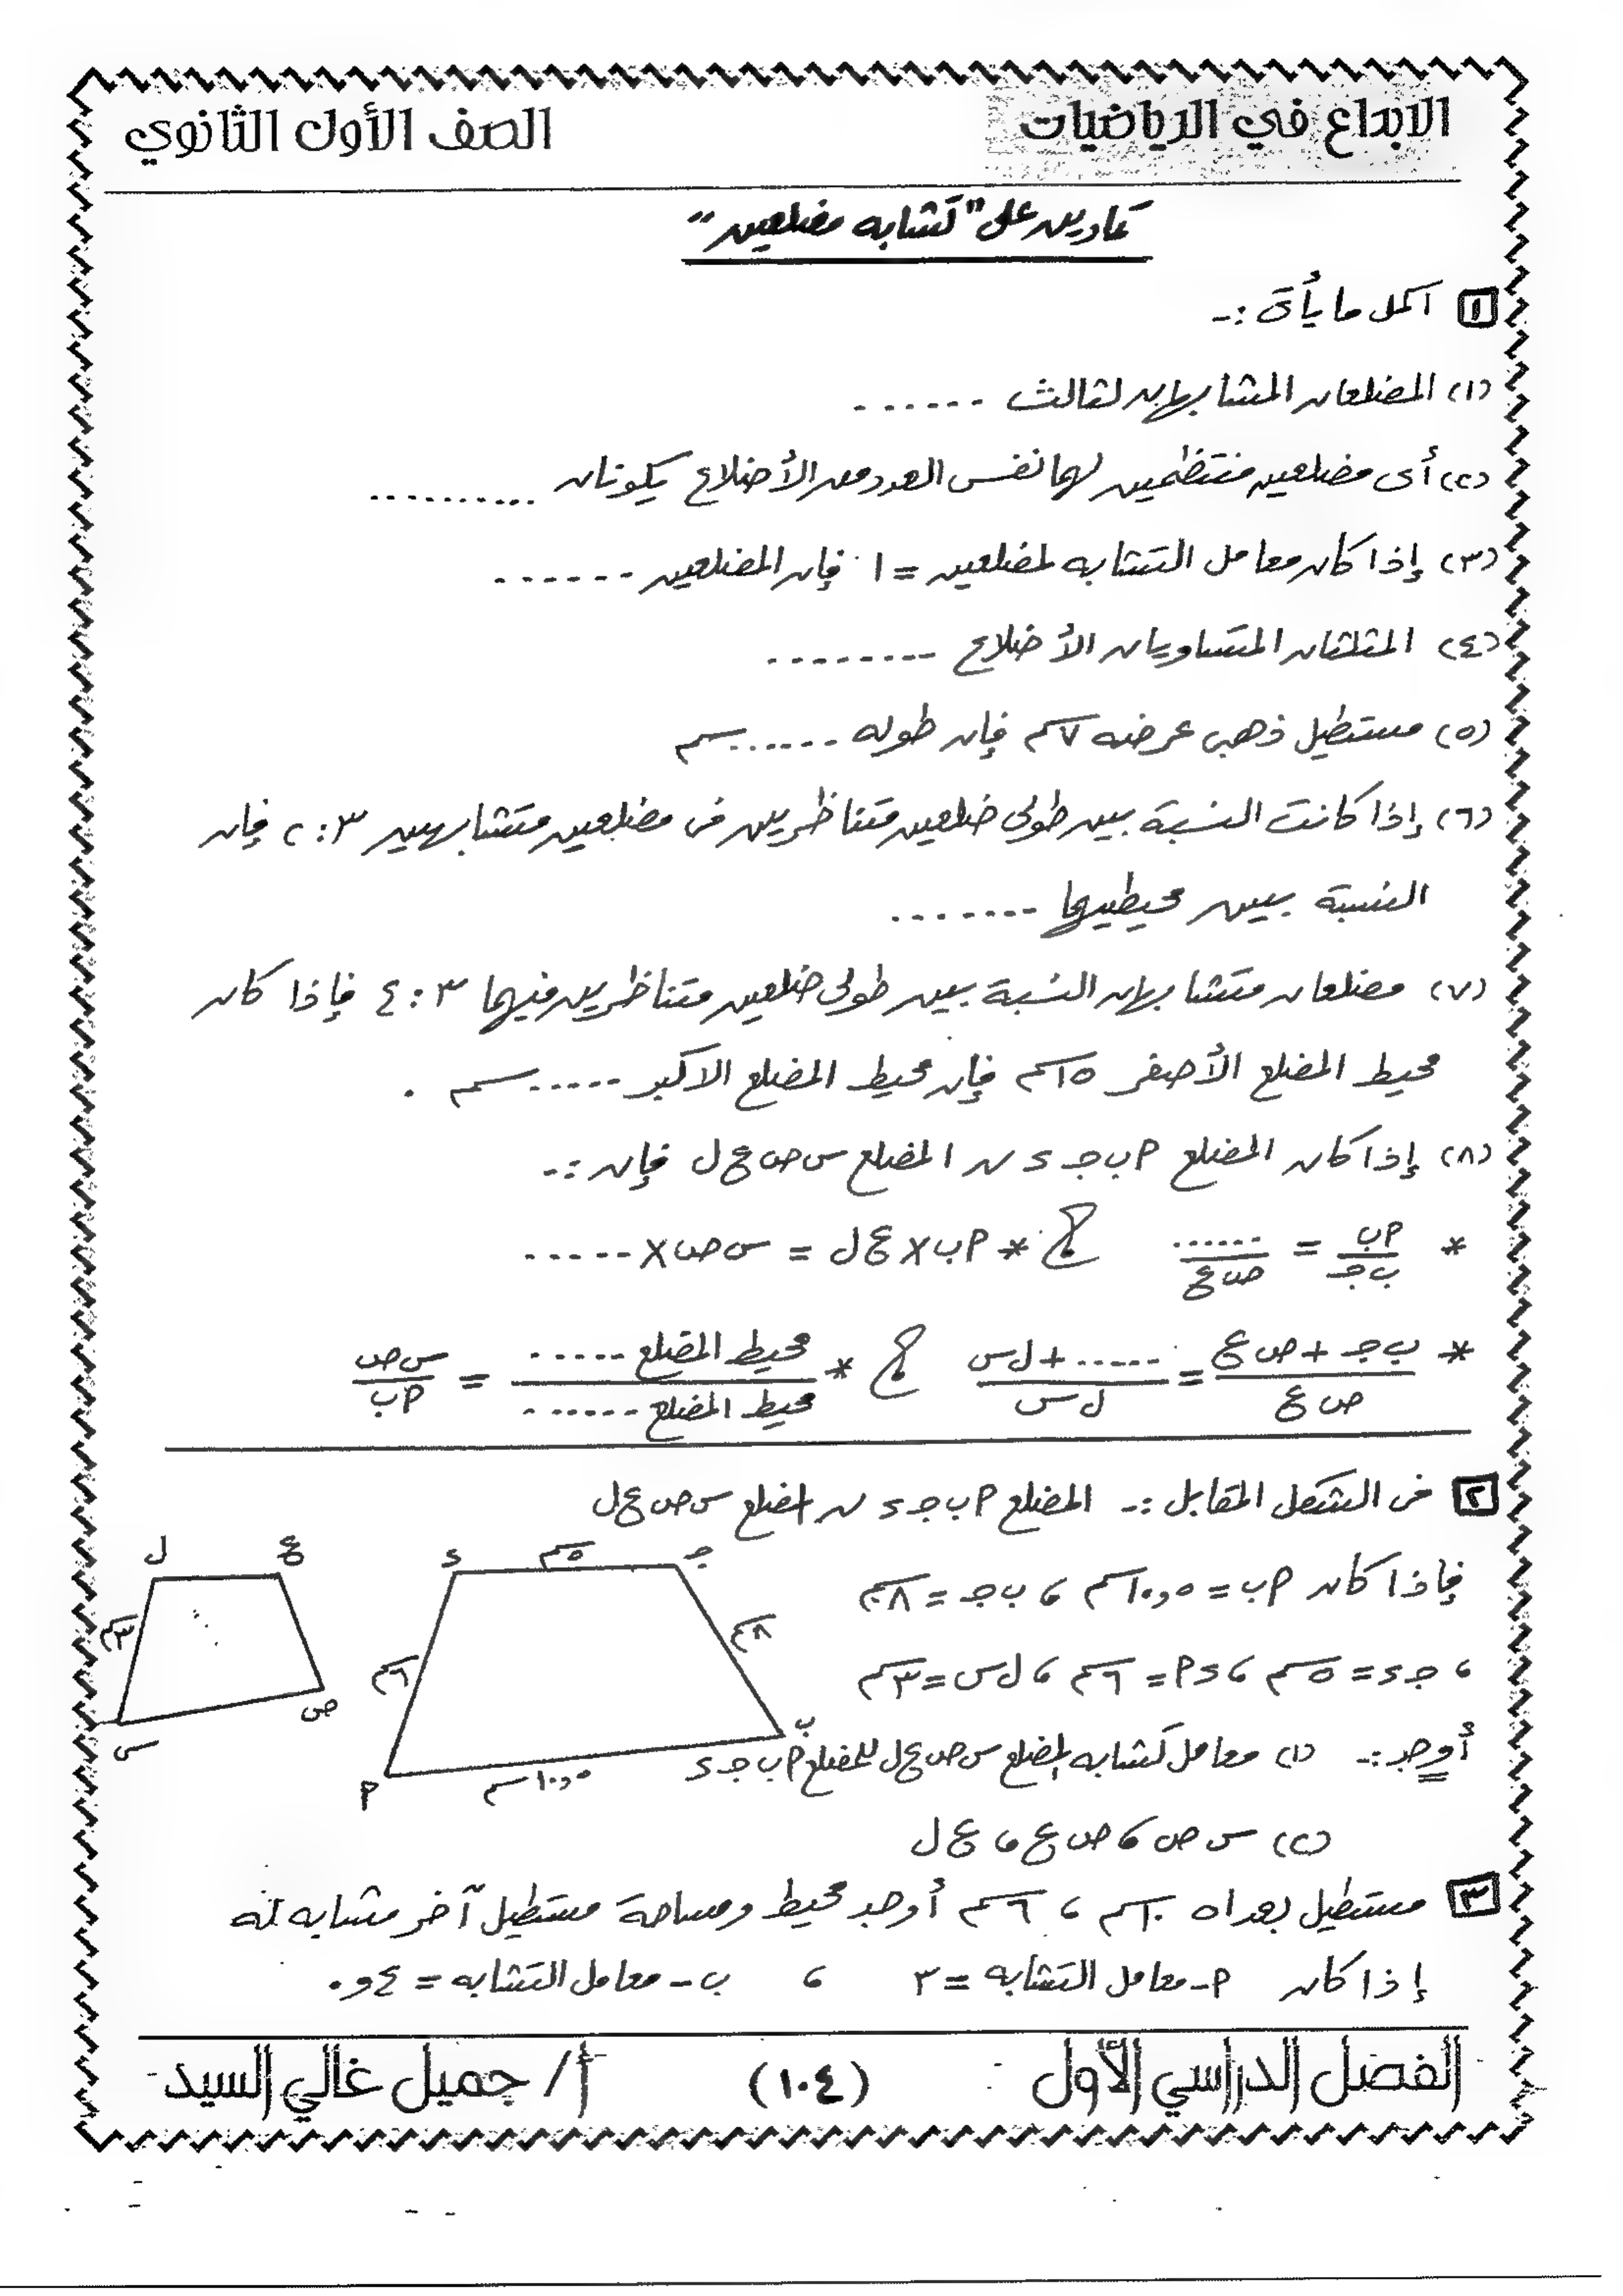 الابداع في الرياضيات
الصف الأول الثانوي
تمارين على "تشابه مضلعين"
١ أكمل ما يأتى :-
(١) المضلعان المشابهان لثالث ......
(٢) أى مضلعين منتظمين لهما نفس العدد من الأضلاع يكونان ..........
(٣) إذا كان معامل التشابه لمضلعين = ١ فإن المضلعين ......
(٤) المثلثان المتساويان الأضلاع ........
(٥) مستطيل ذهبى عرضه ٧سم فإن طوله ...... سم
(٦) إذا كانت النسبة بين طولى ضلعين متناظرين فى مضلعين متشابهين ٣ : ٢ فإن
النسبة بين محيطيهما .......
(٧) مضلعان متشابهان النسبة بين طولى ضلعين متناظرين فيهما ٣ : ٤ فإذا كان
محيط المضلع الأصغر ١٥سم فإن محيط المضلع الاكبر ..... سم .
(٨) إذا كان المضلع ا ب جـ ء ~ المضلع س ص ع ل فإن :-
* ا ب / ب جـ = ...... / ص ع ، * ا ب × ع ل = س ص × .....
* ب جـ + ص ع / ص ع = ..... + ل س / ل س ، * محيط المضلع ..... / محيط المضلع ...... = س ص / ا ب
٢ فى الشكل المقابل :- المضلع ا ب جـ ء ~ المضلع س ص ع ل
فإذا كان ا ب = ١٠,٥سم ، ب جـ = ٨سم
، جـ ء = ٥سم ، ء ا = ٦سم ، ل س = ٣سم
أوجد :- (١) معامل تشابه المضلع س ص ع ل للمضلع ا ب جـ ء
(٢) س ص ، ص ع ، ع ل
جـ
٥سم
ء
ع
ل
٨سم
٦سم
٣سم
ب
ص
س
١٠,٥سم
ا
٣ مستطيل بعداه ١٠سم ، ٦سم أوجد محيط ومساحة مستطيل آخر مشابه له
إذا كان ا- معامل التشابه = ٣ ، ب- معامل التشابه = ٠,٤
الفصل الدراسي الأول
(١٠٤)
أ/ جميل غالي السيد